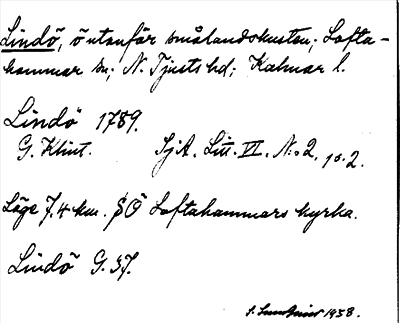 Lindö, ö utanför smålandskusten; Lofta-
hammar sn; N. Tjusts hd; Kalmar l.
Lindö 1789.
G. Klint. SjA. Litt. VI. N:o 2, 10.2.
Läge 7,4 km. SÖ Loftahammars kyrka.
Lindö G. 37.
1938.